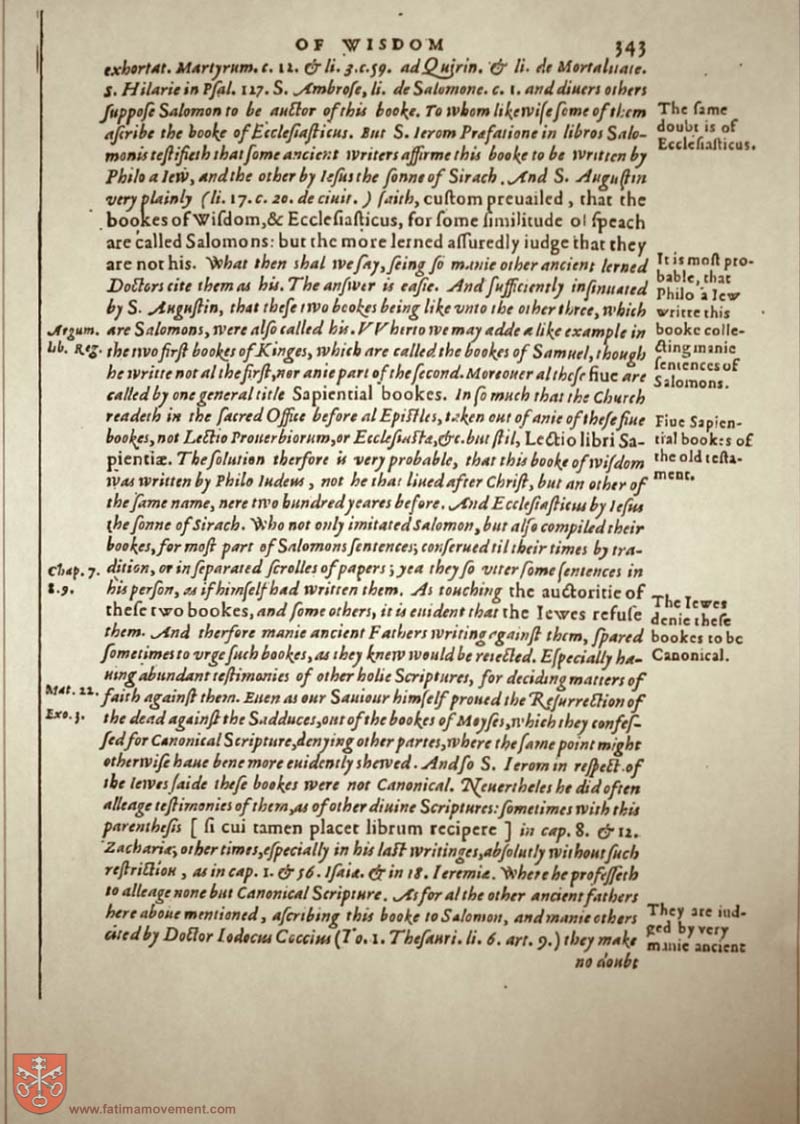 OF WISDOM 343
exhortat. Martyrum. c. 12. & li. 3. c. 59. ad Quirin. & li. de Mortalitate.
S. Hilarie in Pſal. 127. S. Ambroſe, li. de Salomone. c. 1. and diuers others
ſuppoſe Salomon to be auctor of this booke. To whom likewiſe ſome of them
aſcribe the booke of Eccleſiaſticus. But S. Ierom Præfatione in libros Salo-
monis teſtifieth that ſome ancient writers affirme this booke to be written by
Philo a Iew, and the other by Ieſus the ſonne of Sirach. And S. Auguſtin
very plainly (li. 17. c. 20. de ciuit.) ſaith, cuſtom preuailed, that the
bookes of Wiſdom, & Eccleſiaſticus, for ſome ſimilitude of ſpeach
are called Salomons: but the more lerned aſſuredly iudge that they
are not his. What then shal we ſay, ſeing ſo manie other ancient lerned
Doctors cite them as his. The anſwer is eaſie. And ſufficiently inſinuated
by S. Auguſtin, that theſe two bookes being like vnto the other three, which
are Salomons, were alſo called his. VVherto we may adde a like example in
the two firſt bookes of Kinges, which are called the bookes of Samuel, though
he writte not al the firſt, nor anie part of the ſecond. Moreouer al theſe fiue are
called by one general title Sapiential bookes. In ſo much that the Church
readeth in the ſacred Office before al Epiſtles, taken out of anie of theſe fiue
bookes, not Lectio Prouerbiorum, or Eccleſiaſtæ, &c. but ſtil, Lectio libri Sa-
pientiæ. The ſolution therfore is very probable, that this booke of wiſdom
was written by Philo Iudeus, not he that liued after Chriſt, but an other of
the ſame name, nere two hundred yeares before. And Eccleſiaſticus by Ieſus
the ſonne of Sirach. Who not only imitated Salomon, but alſo compiled their
bookes, for moſt part of Salomons ſentences; conſerued til their times by tra-
dition, or in ſeparated ſcrolles of papers; yea they ſo vtter ſome ſentences in
his perſon, as if himſelf had written them. As touching the auctoritie of
theſe two bookes, and ſome others, it is euident that the Iewes refuſe
them. And therfore manie ancient Fathers writing againſt them, ſpared
ſometimes to vrge ſuch bookes, as they knew would be reiected. Eſpecially ha-
uing abundant teſtimonies of other holie Scriptures, for deciding matters of
faith againſt them. Euen as our Sauiour himſelf proued the Reſurrection of
the dead againſt the Sadduces, out of the bookes of Moyſes, which they confeſ-
ſed for Canonical Scripture, denying other partes, where the ſame point might
otherwiſe haue bene more euidently shewed. And ſo S. Ierom in reſpect of
the Iewes ſaide theſe bookes were not Canonical. Neuertheles he did often
alleage teſtimonies of them, as of other diuine Scriptures: ſometimes with this
parentheſis [ ſi cui tamen placet librum recipere ] in cap. 8. & 12.
Zachariæ; other times, eſpecially in his laſt writinges, abſolutly without ſuch
reſtriction, as in cap. 1. & 56. Iſaiæ. & in 18. Ieremiæ. Where he profeſſeth
to alleage none but Canonical Scripture. As for al the other ancient fathers
here aboue mentioned, aſcribing this booke to Salomon, and manie others
cited by Doctor Iodocus Coccius (To. 1. Theſauri. li. 6. art. 9.) they make
no doubt
The ſame
doubt is of
Eccleſiaſticus.
It is moſt pro-
bable, that
Philo a Iew
writte this
booke colle-
cting manie
ſentences of
Salomons.
Fiue Sapien-
tial bookes of
the old teſta-
ment.
The Iewes
denie theſe
bookes to be
Canonical.
They are iud-
ged by very
manie ancient
Argum.
lib. Reg.
Chap. 7.
8. 9.
Mat. 22.
Exo. 3.
www.fatimamovement.com